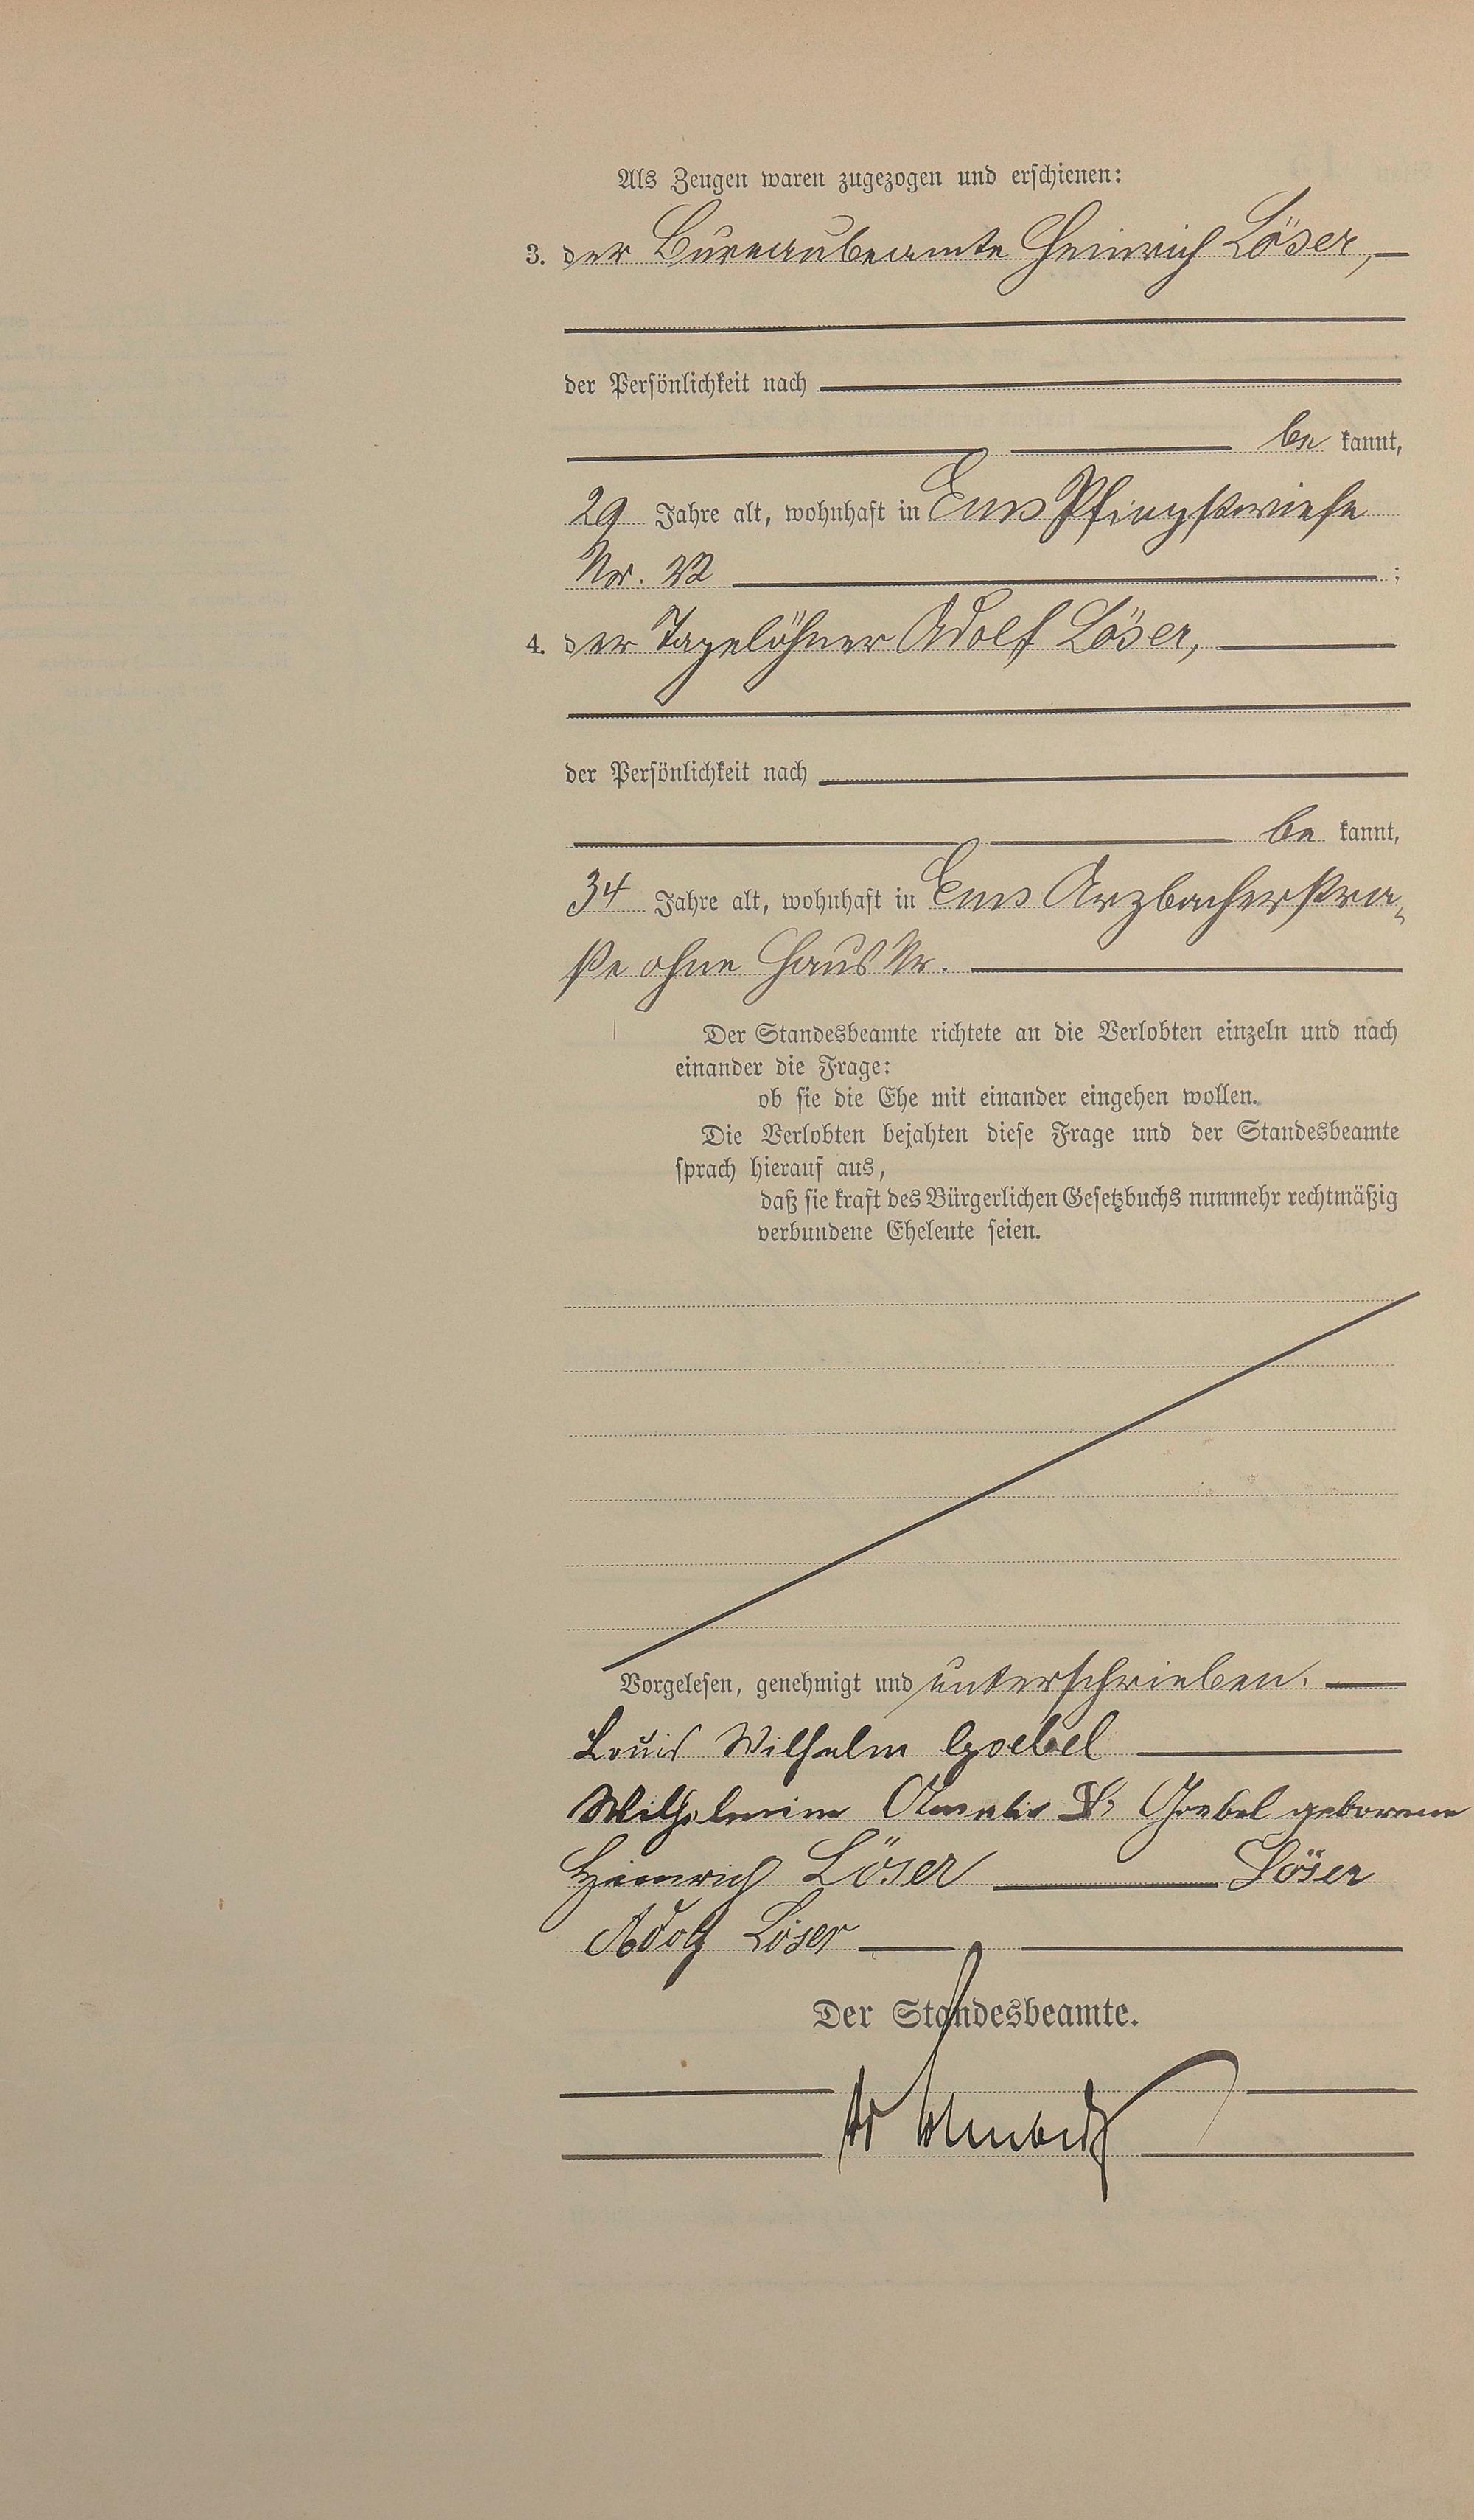 Als Zeugen waren zugezogen und erschienen:
3. der Bureaubeamte Heinrich Löser,
der Persönlichkeit nach
be kannt,
29 Jahre alt, wohnhaft in Ems Pfingstwiese
Nr. 22 ;
4. der Tagelöhner Adolf Löser,
der Persönlichkeit nach
be kannt,
34 Jahre alt, wohnhaft in Ems Arzbacherstra-
ße ohne Haus Nr.
Der Standesbeamte richtete an die Verlobten einzeln und nach
einander die Frage:
ob sie die Ehe mit einander eingehen wollen.
Die Verlobten bejahten diese Frage und der Standesbeamte
sprach hierauf aus,
daß sie kraft des Bürgerlichen Gesetzbuchs nunmehr rechtmäßig
verbundene Eheleute seien.
Vorgelesen, genehmigt und unterschrieben.
Louis Wilhelm Goebel
Wilhelmine Amalie Goebel geborene
Heinrich Löser Löser
Adolf Löser
Der Standesbeamte.